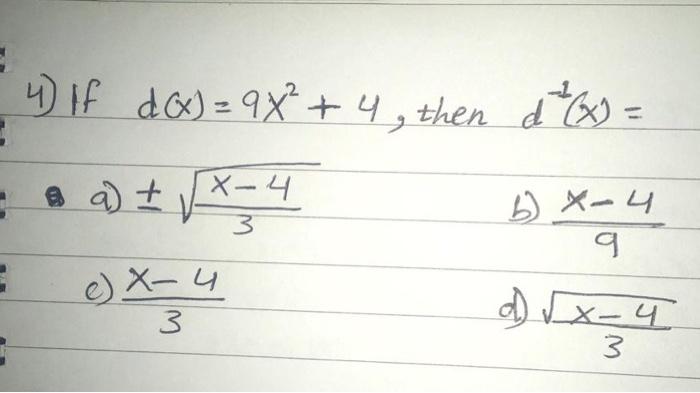 4) If d(x) = 9x² + 4, then d⁻¹(x) =
a) ± √(x-4)/3 b) (x-4)/9
c) (x-4)/3 d) √(x-4)/3